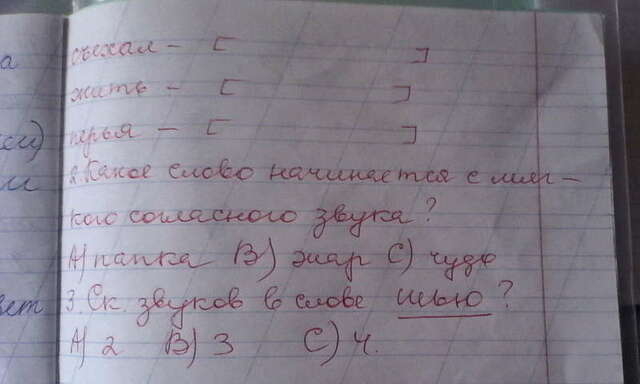 съехал – [ ]
жить – [ ]
перья – [ ]
2. Какое слово начинается с мяг –
кого согласного звука?
А) папка В) жар С) чудо
3. Ск. звуков в слове шью?
А) 2 В) 3 С) 4.
а
и
ет